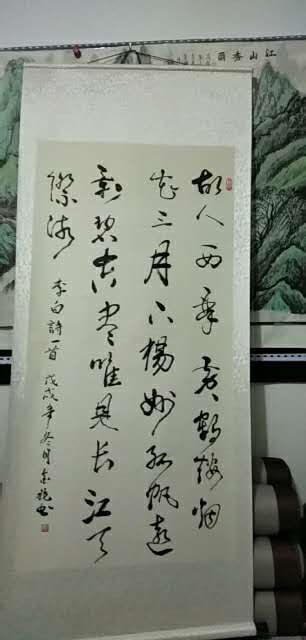 江山
故人西辭黄鶴樓烟
花三月下楊州孤帆遠
影碧空盡唯見長江天
際流 李白詩一首 戊戌年冬月 書